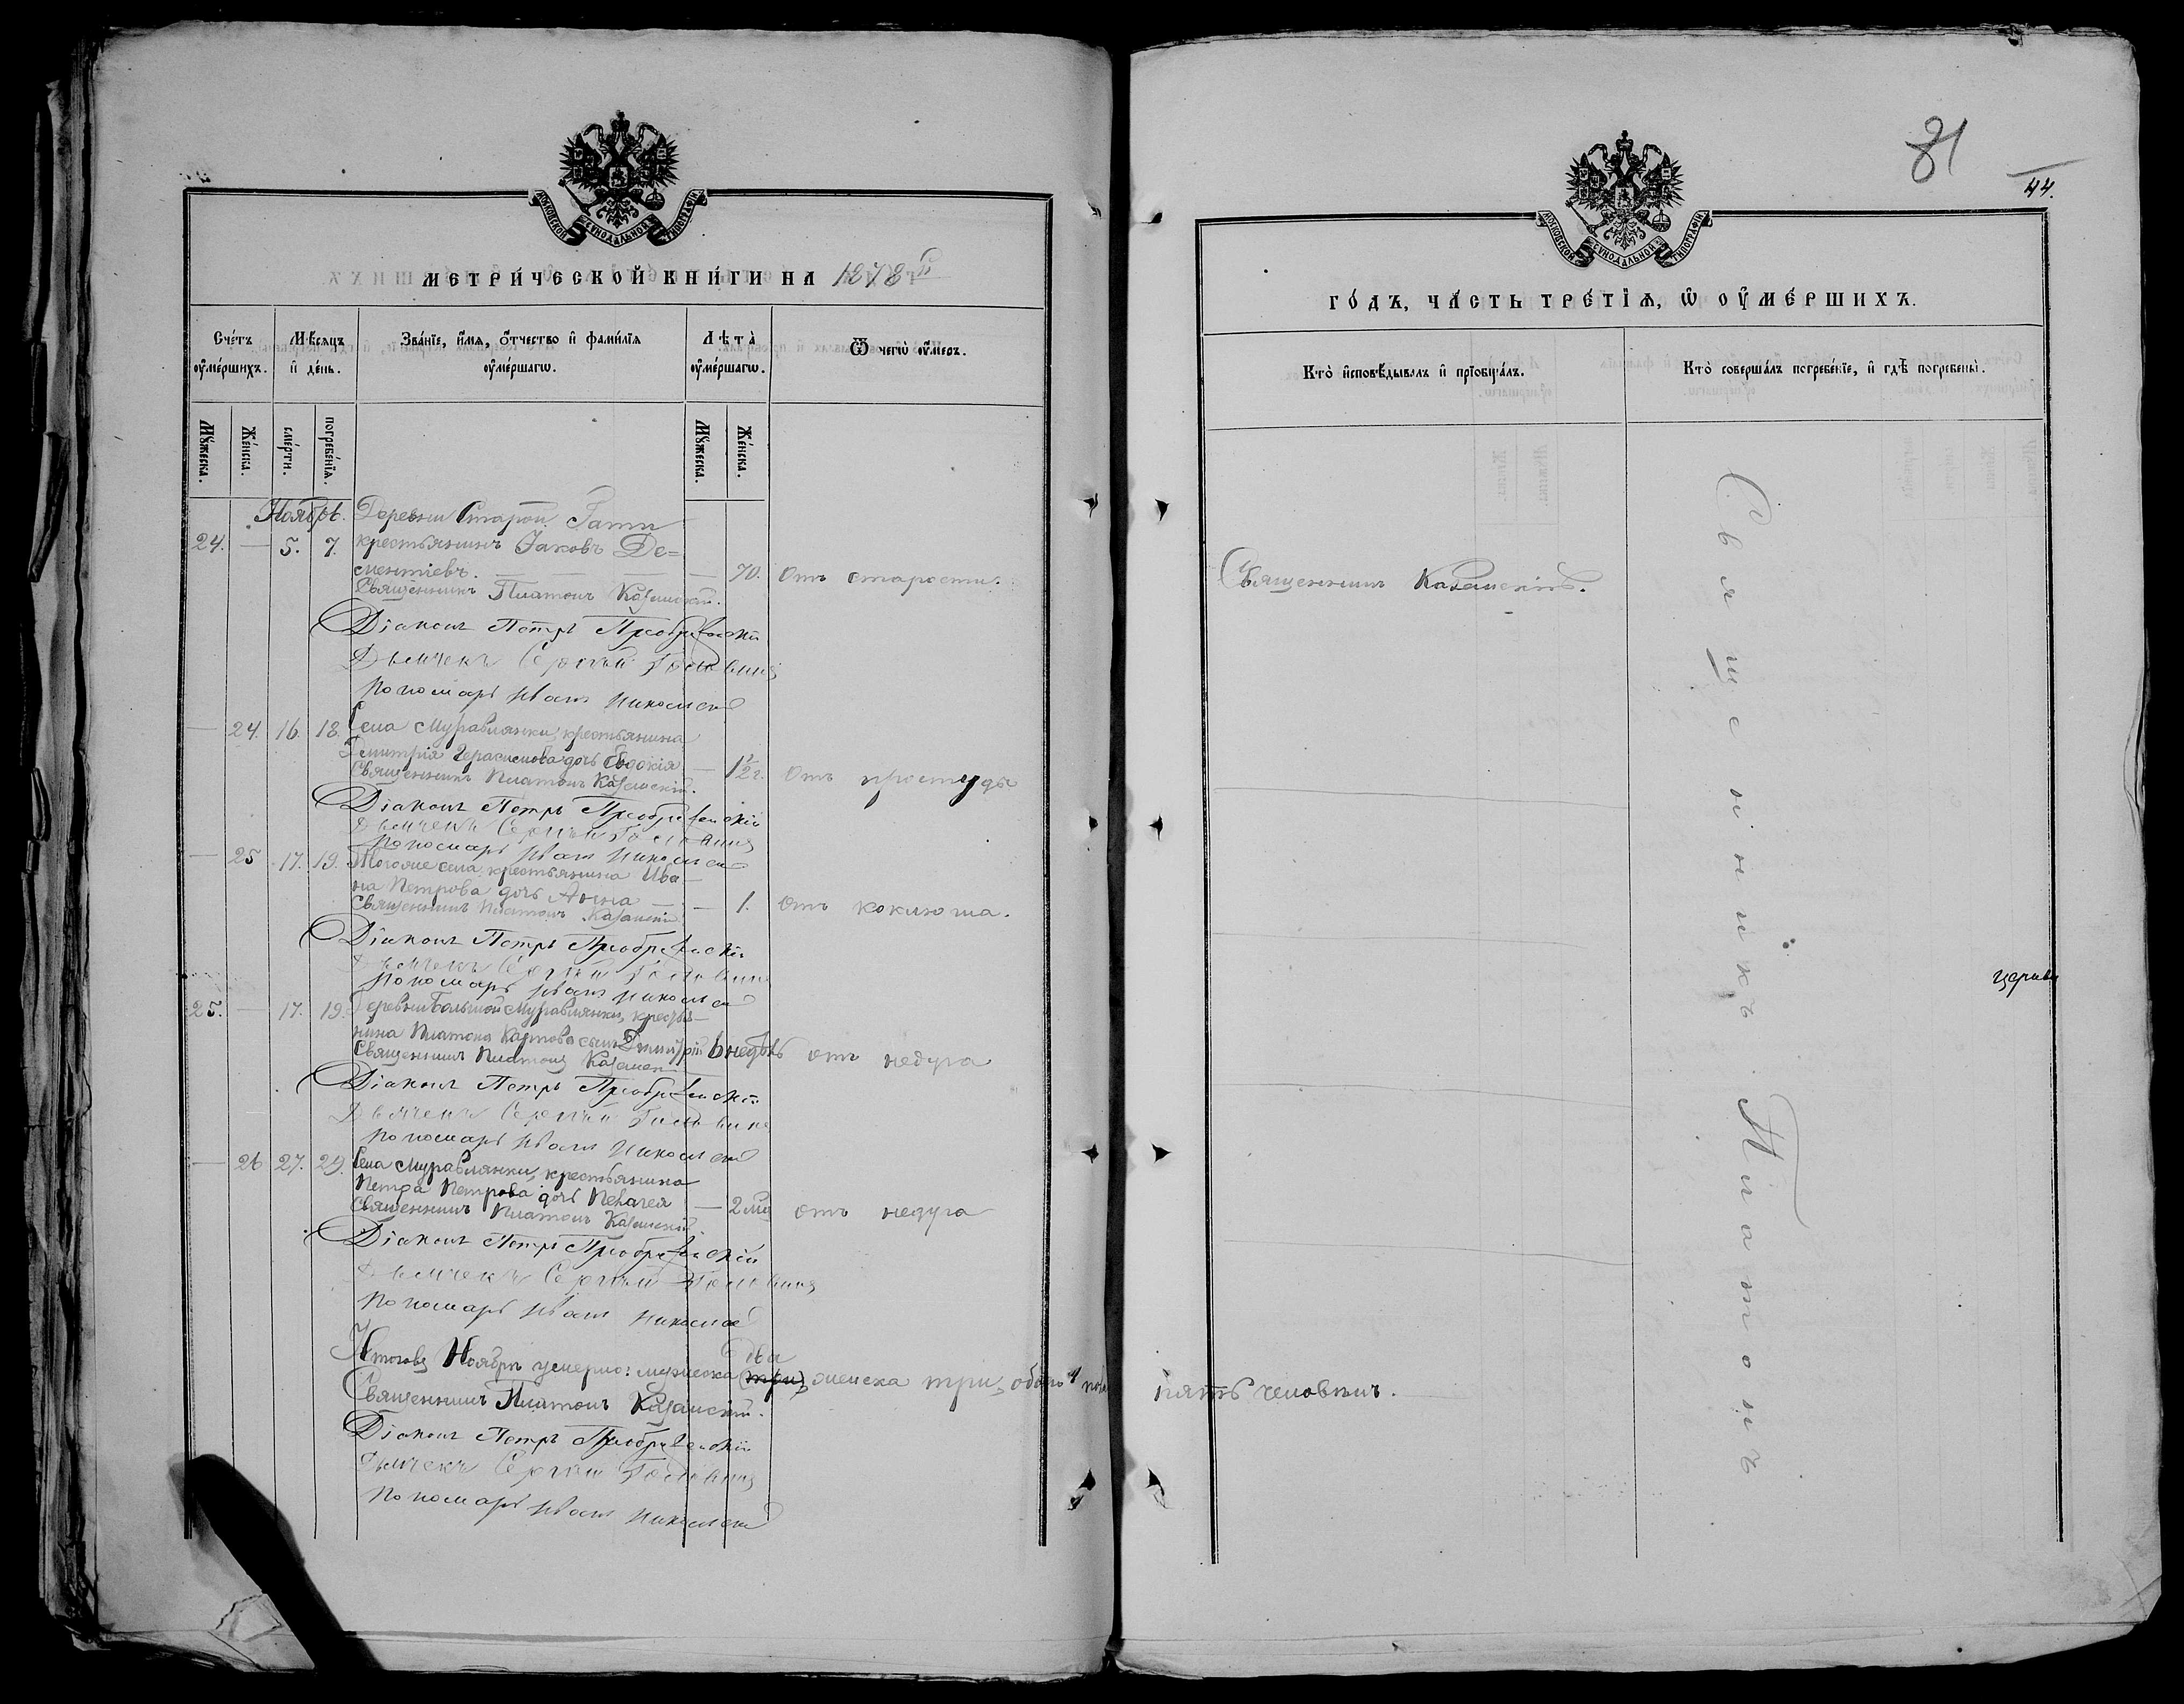 МОСКОВСКОЙ СѴНОДАЛЬНОЙ ТИПОГРАФІИ
МЕТРИ́ЧЕСКОЙ КНИ́ГИ НА 1878й
Сче́тъ ᲂу҆ме́ршихъ.
Мѣ́сяцъ и҆ де́нь.
Зва́нїе, и҆́мѧ, ѻ҆́тчество и҆ фами́лїѧ ᲂу҆ме́ршагѡ.
Лѣ́та ᲂу҆ме́ршагѡ.
Ѿ чегѡ̀ ᲂу҆́меръ.
Мꙋ́жеска.
Же́нска.
сме́рти.
погребе́нїѧ.
Мꙋ́жеска.
Же́нска.
Ноябрь. Деревни Старой Гати
24. — 5. 7. крестьянинъ Іаковъ Де=
ментіевъ. — 70. Отъ старости.
Священникъ Платонъ Казанскій.
Діаконъ Петръ Преображенскій
Дьячекъ Сергѣй Головинъ
Пономарь Иванъ Никольскій
— 24. 16. 18. Села Муравлянки, крестьянина
Димитрія Герасимова дочь Евдокія — 1½ г. Отъ простуды
Священникъ Платонъ Казанскій.
Діаконъ Петръ Преображенскій
Дьячекъ Сергѣй Головинъ
Пономарь Иванъ Никольскій
— 25 17. 19. Тогоже села, крестьянина Ива-
на Петрова дочь Анна — — 1. Отъ коклюша.
Священникъ Платонъ Казанскій
Діаконъ Петръ Преображенскій
Дьячекъ Сергѣй Головинъ
Пономарь Иванъ Никольскій
25. — 17. 19. Деревни Большой Муравлянки, крестья-
нина Платона Карпова сынъ Димитрій 6 недѣль отъ недуга
Священникъ Платонъ Казанскій
Діаконъ Петръ Преображенскій
Дьячекъ Сергѣй Головинъ
Пономарь Иванъ Никольскій
— 26 27. 29. Села Муравлянки, крестьянина
Петра Петрова дочь Пелагея — 2 мц отъ недуга
Священникъ Платонъ Казанскій
Діаконъ Петръ Преображенскій
Дьячекъ Сергѣй Головинъ
Пономарь Иванъ Никольскій
два
Итого въ Ноябрѣ умерло: мужеска (три), женска три, обоего пола пять человѣкъ.
Священникъ Платонъ Казанскій.
Діаконъ Петръ Преображенскій
Дьячекъ Сергѣй Головинъ
Пономарь Иванъ Никольскій
81
44.
МОСКОВСКОЙ СѴНОДАЛЬНОЙ ТИПОГРАФІИ
ГО́ДЪ, ЧА́СТЬ ТРЕ́ТЇѦ, Ѡ҆ ОУ҆МЕ́РШИХЪ.
Кто̀ и҆сповѣ́дывалъ и҆ прїобща́лъ.
Кто̀ соверша́лъ погребе́нїе, и҆ гдѣ̀ погребены̀.
Священникъ Казанскій.
Священникъ Платонъ
церкви